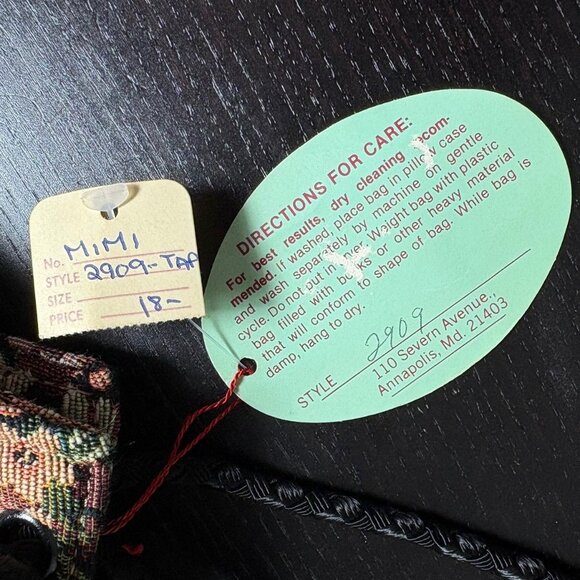 No. MIMI
STYLE 2909-TAP
SIZE
PRICE 18-
DIRECTIONS FOR CARE:
For best results, dry cleaning
mended. If washed, place bag in pillow case
and wash separately by machine on gentle
cycle. Do not put in Weight bag with plastic
bag filled with or other heavy material
that will conform to shape of bag. While bag is
damp, hang to dry.
STYLE 2909
110 Severn Avenue,
Annapolis, Md. 21403